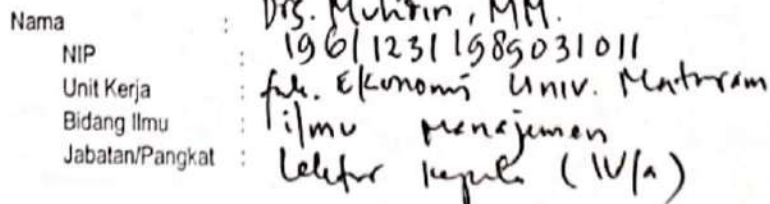 Nama : Drs. Muhidin, MM.
NIP : 196112311989031011
Unit Kerja : fak. Ekonomi Univ. Mataram
Bidang Ilmu : ilmu manajemen
Jabatan/Pangkat : Lektor kepala (IV/a)